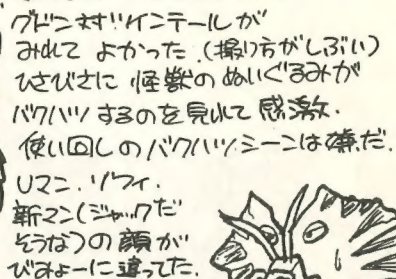 グドン対ツインテールが
みれて よかった.(撮り方がしぶい)
ひさびさに 怪獣のぬいぐるみが
バクハツするのを見れて感激.
使い回しのバクハツシーンは嫌だ.
Uマン.ゾフィ.
新マン(ジャックだ
そうな)の顔が
びみょーに違ってた.